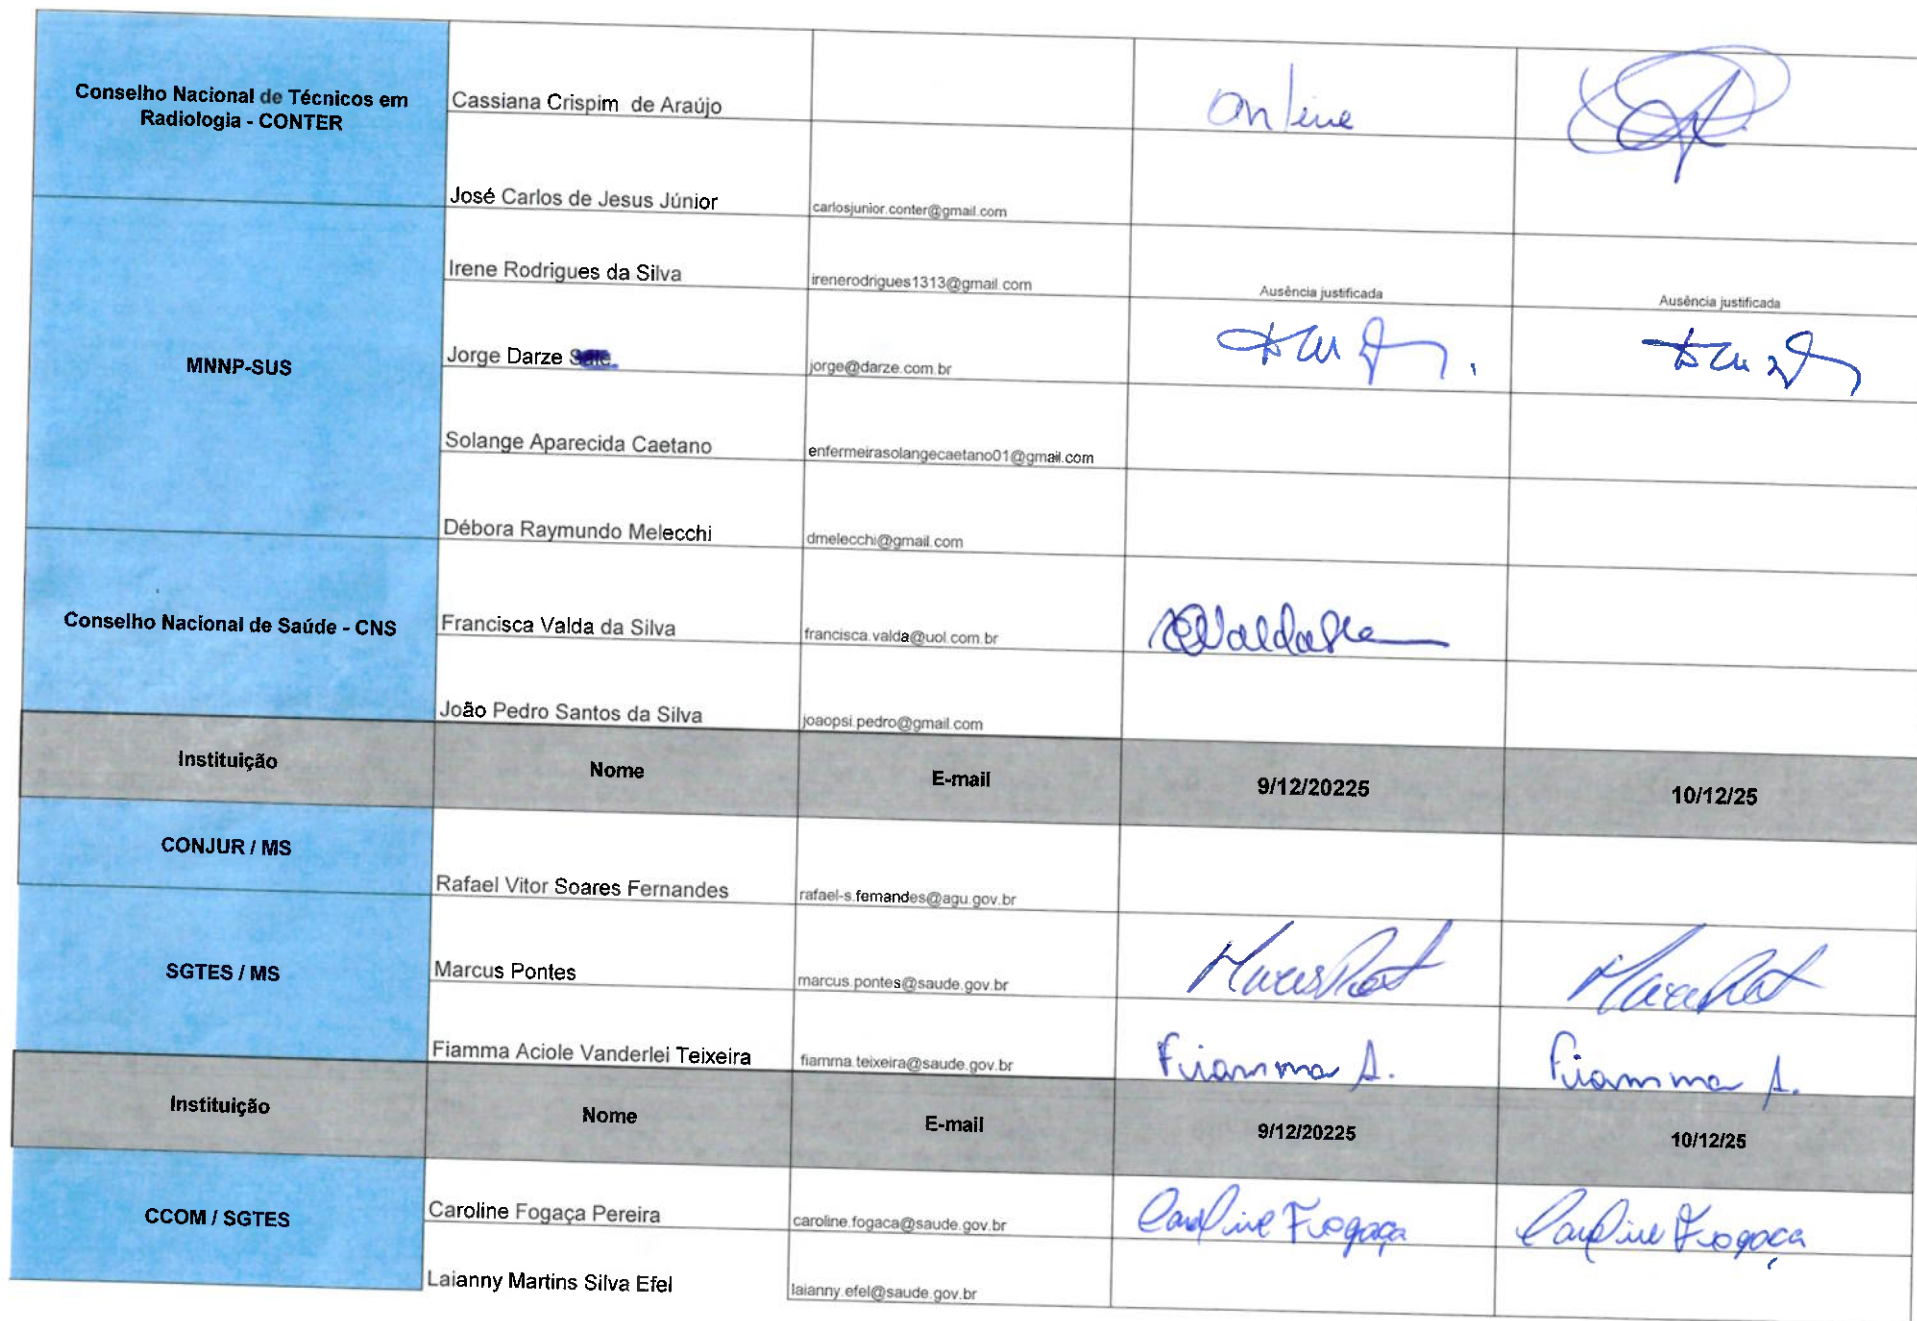 Conselho Nacional de Técnicos em
Radiologia - CONTER
Cassiana Crispim de Araújo
online
José Carlos de Jesus Júnior
carlosjunior.conter@gmail.com
MNNP-SUS
Irene Rodrigues da Silva
irenerodrigues1313@gmail.com
Ausência justificada
Ausência justificada
Jorge Darze
jorge@darze.com.br
Solange Aparecida Caetano
enfermeirasolangecaetano01@gmail.com
Débora Raymundo Melecchi
dmelecchi@gmail.com
Conselho Nacional de Saúde - CNS
Francisca Valda da Silva
francisca.valda@uol.com.br
João Pedro Santos da Silva
joaopsi.pedro@gmail.com
Instituição
Nome
E-mail
9/12/20225
10/12/25
CONJUR / MS
Rafael Vitor Soares Fernandes
rafael-s.fernandes@agu.gov.br
SGTES / MS
Marcus Pontes
marcus.pontes@saude.gov.br
Fiamma Aciole Vanderlei Teixeira
fiamma.teixeira@saude.gov.br
Fiamma A.
Fiamma A.
Instituição
Nome
E-mail
9/12/20225
10/12/25
CCOM / SGTES
Caroline Fogaça Pereira
caroline.fogaca@saude.gov.br
Caroline Fogaça
Caroline Fogaça
Laianny Martins Silva Efel
laianny.efel@saude.gov.br